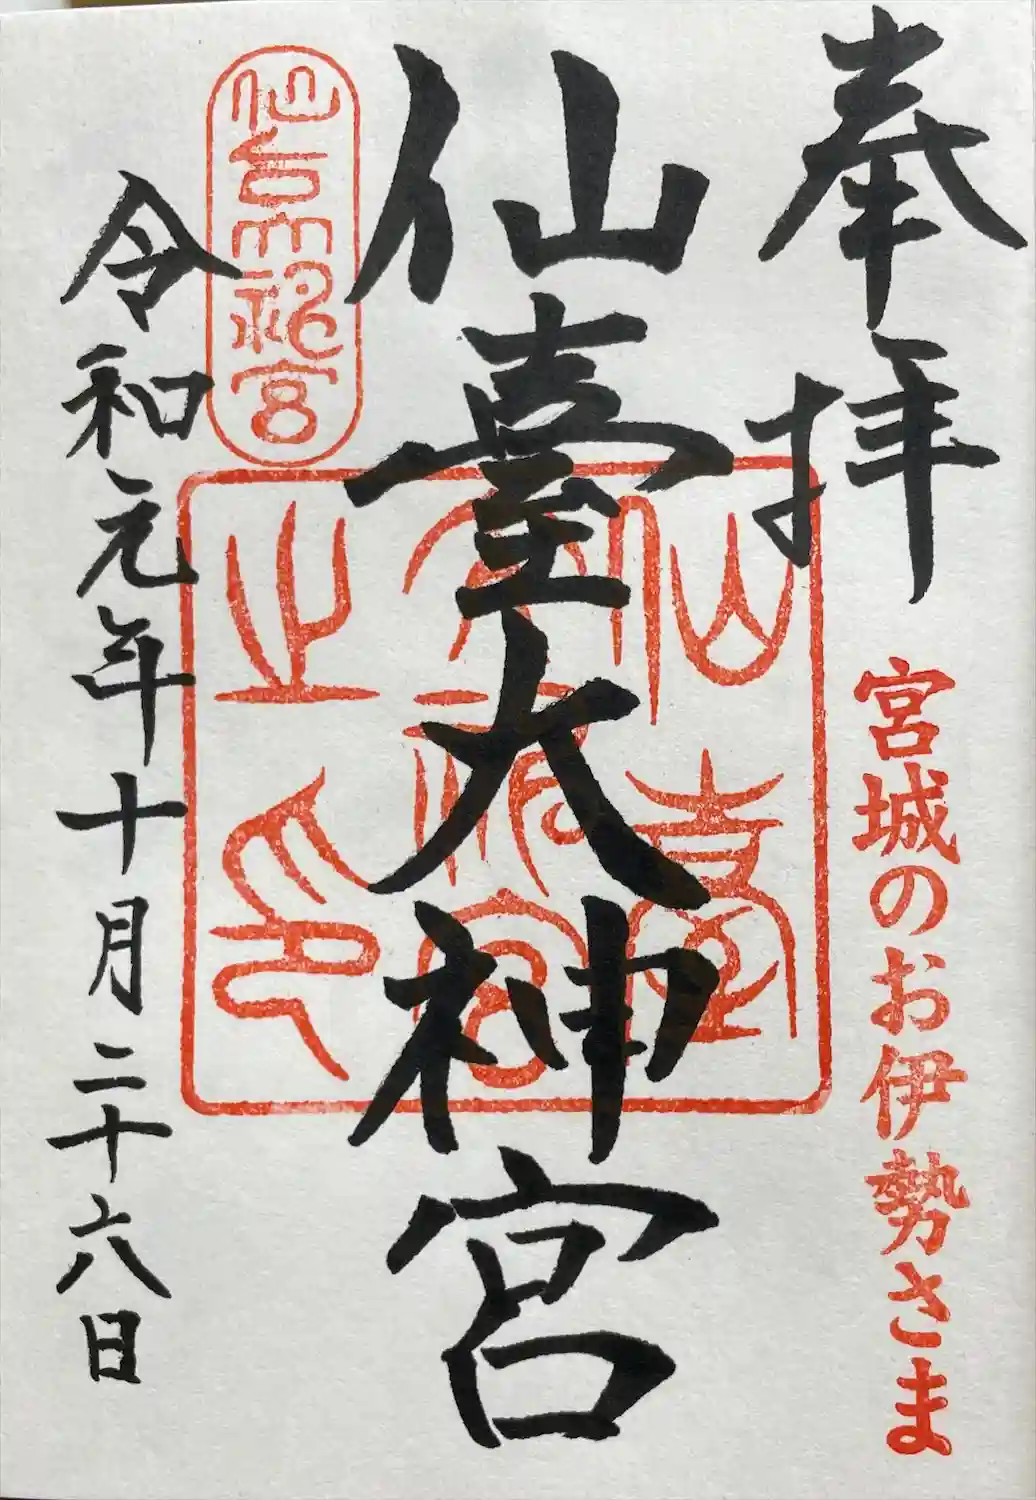 奉拝
宮城のお伊勢さま
仙臺大神宮
仙台大神宮
仙臺
大神宮
之印
令和元年十月二十六日